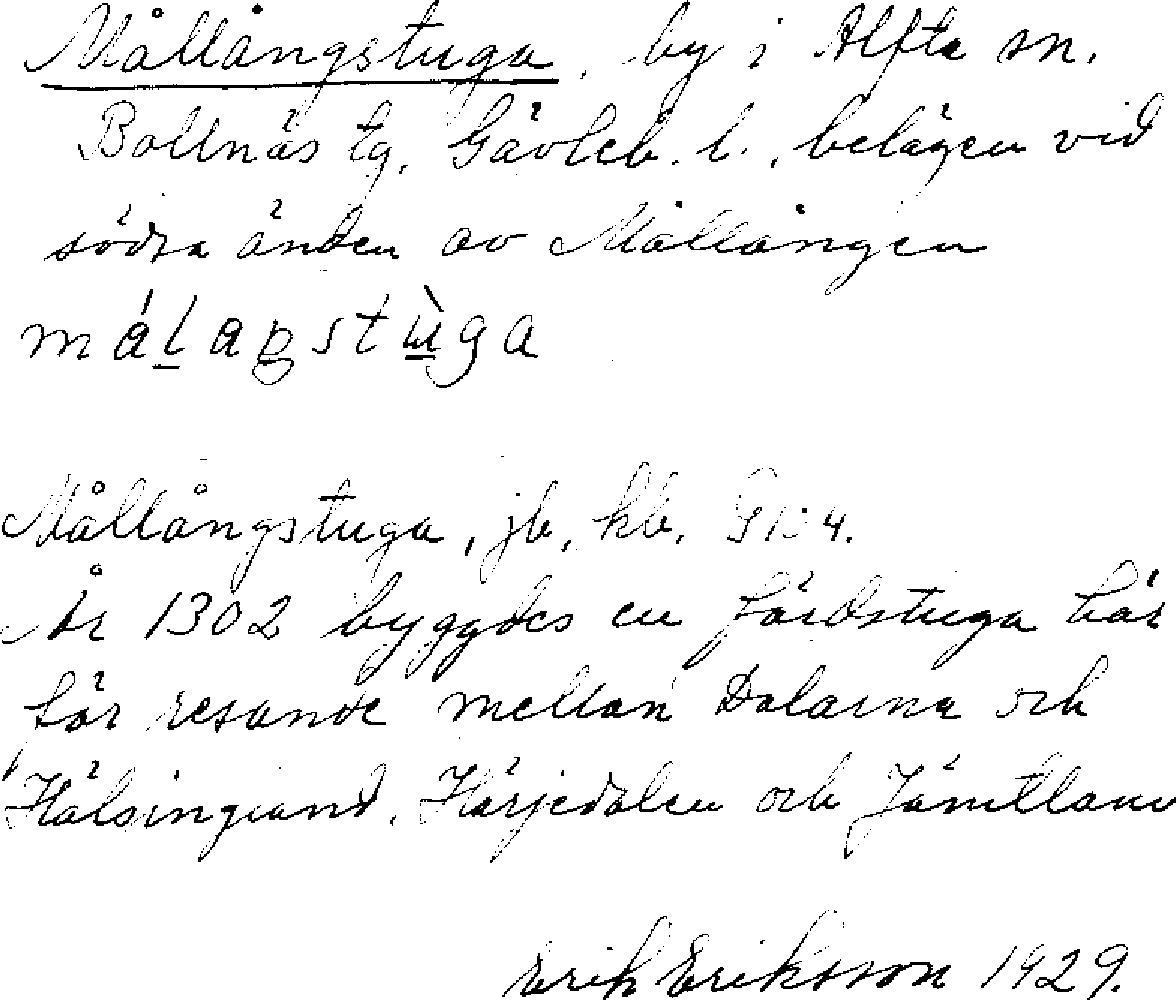 Mållångstuga, by i Alfta sn.
Bollnäs tg, Gävleb. l., belägen vid
södra änden av Mållången
málaŋstùga
Mållångstuga, jb, kb,
År 1302 byggdes en färdstuga här
för resande mellan Dalarna och
Hälsingland, Härjedalen och Jämtland
Erik Eriksson 1929.